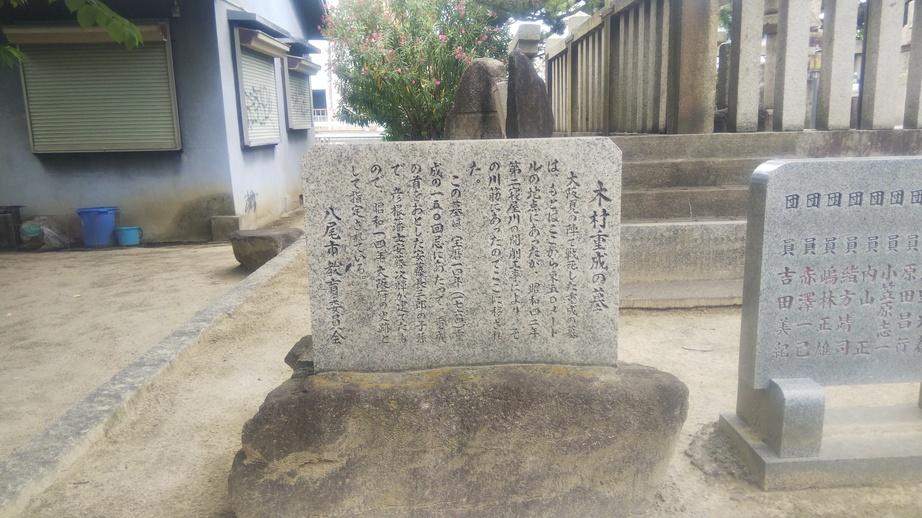 木村重成の墓
大阪夏の陣で戦死した重成の墓
は、もとはここから東五〇メート
ルの地点にあったが、昭和四二年
第二寝屋川の開削工事により、そ
の川筋にあったのでここに移され
た。
この墓は、宝暦一〇年（一七六〇）重
成の一五〇回忌にあたって、重成
の首をおとした安藤長三郎の子孫
で、彦根藩士安藤次輝が建てたも
ので、昭和一四年大阪府の史跡と
して指定されている。
八尾市教育委員会
団員
団員
団員 小笠原志一
団員 内山 正
団員 緒方靖司
団員 嶋林正雄
団員 赤澤一己
団員 吉田美紀